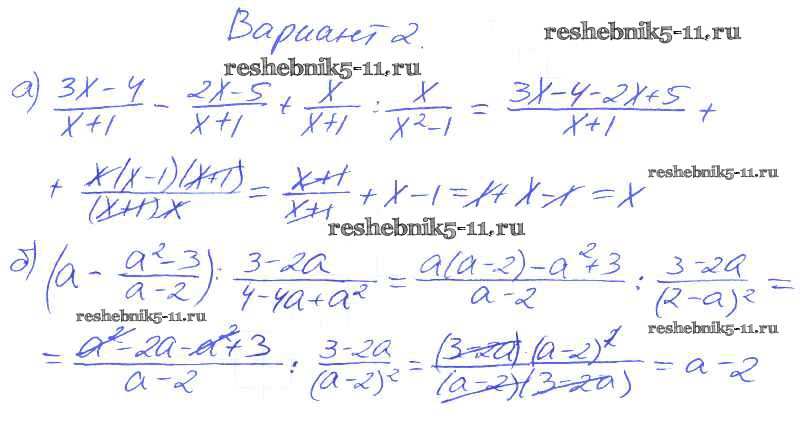 Вариант 2.
reshebnik5-11.ru
reshebnik5-11.ru
а) (3x-4)/(x+1) - (2x-5)/(x+1) + x/(x+1) : x/(x²-1) = (3x-4-2x+5)/(x+1) +
reshebnik5-11.ru
+ (x(x-1)(x+1))/((x+1)x) = (x+1)/(x+1) + x-1 = 1+x-1 = x
reshebnik5-11.ru
б) (a - (a²-3)/(a-2)) : (3-2a)/(4-4a+a²) = (a(a-2)-a²+3)/(a-2) : (3-2a)/(2-a)² =
reshebnik5-11.ru
reshebnik5-11.ru
= (a²-2a-a²+3)/(a-2) : (3-2a)/(a-2)² = ((3-2a)·(a-2)²)/((a-2)(3-2a)) = a-2